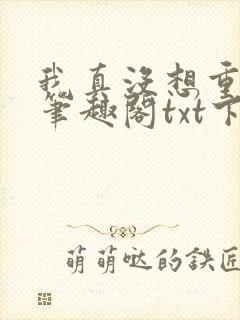 我真没想重
笔趣阁txt下
萌萌哒的鉄匠